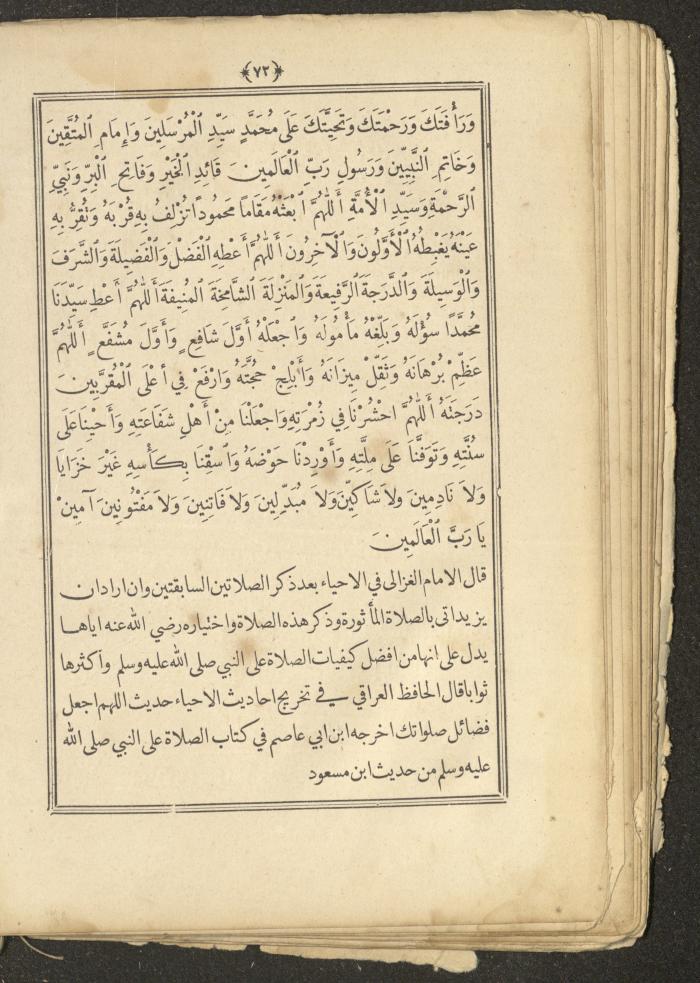 ﴿٧٣﴾
وَرَأْفَتَكَ وَرَحْمَتَكَ وَتَحِيَّتَكَ عَلَى مُحَمَّدٍ سَيِّدِ الْمُرْسَلِينَ وَإِمَامِ الْمُتَّقِينَ
وَخَاتِمِ النَّبِيِّينَ وَرَسُولِ رَبِّ الْعَالَمِينَ قَائِدِ الْخَيْرِ وَفَاتِحِ الْبِرِّ وَنَبِيِّ
الرَّحْمَةِ وَسَيِّدِ الْأُمَّةِ أَللّٰهُمَّ ابْعَثْهُ مَقَامًا مَحْمُودًا تُزْلِفُ بِهِ قُرْبَهُ وَتُقِرُّ بِهِ
عَيْنَهُ يَغْبِطُهُ الْأَوَّلُونَ وَالْآخِرُونَ أَللّٰهُمَّ أَعْطِهِ الْفَضْلَ وَالْفَضِيلَةَ وَالشَّرَفَ
وَالْوَسِيلَةَ وَالدَّرَجَةَ الرَّفِيعَةَ وَالْمَنْزِلَةَ الشَّامِخَةَ الْمُنِيفَةَ أَللّٰهُمَّ أَعْطِ سَيِّدَنَا
مُحَمَّدًا سُؤْلَهُ وَبَلِّغْهُ مَأْمُولَهُ وَاجْعَلْهُ أَوَّلَ شَافِعٍ وَأَوَّلَ مُشَفَّعٍ أَللّٰهُمَّ
عَظِّمْ بُرْهَانَهُ وَثَقِّلْ مِيزَانَهُ وَأَبْلِجْ حُجَّتَهُ وَارْفَعْ فِي أَعْلَى الْمُقَرَّبِينَ
دَرَجَتَهُ أَللّٰهُمَّ احْشُرْنَا فِي زُمْرَتِهِ وَاجْعَلْنَا مِنْ أَهْلِ شَفَاعَتِهِ وَأَحْيِنَا عَلَى
سُنَّتِهِ وَتَوَفَّنَا عَلَى مِلَّتِهِ وَأَوْرِدْنَا حَوْضَهُ وَاسْقِنَا بِكَأْسِهِ غَيْرَ خَزَايَا
وَلَا نَادِمِينَ وَلَا شَاكِّينَ وَلَا مُبَدِّلِينَ وَلَا فَاتِنِينَ وَلَا مَفْتُونِينَ آمِينْ
يَا رَبَّ الْعَالَمِينَ
قال الامام الغزالى في الاحياء بعد ذكر الصلاتين السابقتين وان ارادان
يزيد اتى بالصلاة المأثورة وذكر هذه الصلاة واختياره رضي الله عنه اياها
يدل على انها من افضل كيفيات الصلاة على النبي صلى الله عليه وسلم واكثرها
ثوابا قال الحافظ العراقي في تخريج احاديث الاحياء حديث اللهم اجعل
فضائل صلواتك اخرجه ابن ابي عاصم في كتاب الصلاة على النبي صلى الله
عليه وسلم من حديث ابن مسعود